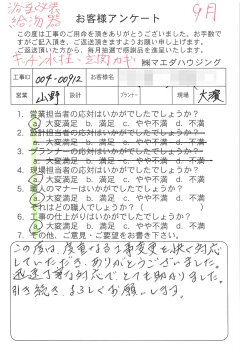 浴室改装
給湯器
9月
お客様アンケート
この度は工事のご用命を頂きありがとうございました。お手数で
すがご記入頂き、ご返送頂きますようお願い申し上げます。
ご返送頂いた方から、毎月抽選で感謝品を進呈いたします。
キッチン水栓・玄関カギ
㈱マエダハウジング
工事ID 004-00912 お客様名
営業 山野 設計 プランナー 現場 大濱
1. 営業担当者の応対はいかがでしたでしょうか?
a 大変満足 b. 満足 c. やや不満 d. 不満
2. 設計担当者の応対はいかがでしたでしょうか?
a. 大変満足 b. 満足 c. やや不満 d. 不満
3. プランナーの応対はいかがでしたでしょうか?
a. 大変満足 b. 満足 c. やや不満 d. 不満
4. 現場担当者の応対はいかがでしたでしょうか?
a 大変満足 b. 満足 c. やや不満 d. 不満
5. 職人のマナーはいかがでしたでしょうか?
a 大変満足 b. 満足 c. やや不満 d. 不満
それはどの職人でしょうか?( )
6. 工事の仕上がりはいかがでしたでしょうか?
a 大変満足 b. 満足 c. やや不満 d. 不満
7. その他、ご意見・ご要望をお書き下さい。
この度は、度重なる工事変更を快く対応
していただき、ありがとうございました。
迅速丁寧な対応でとても助かりました。
引き続きよろしくお願いします。